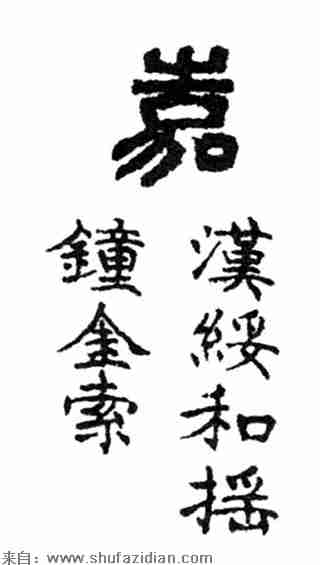 嘉
漢綏和揺
鐘金索
来自：www.shufazidian.com